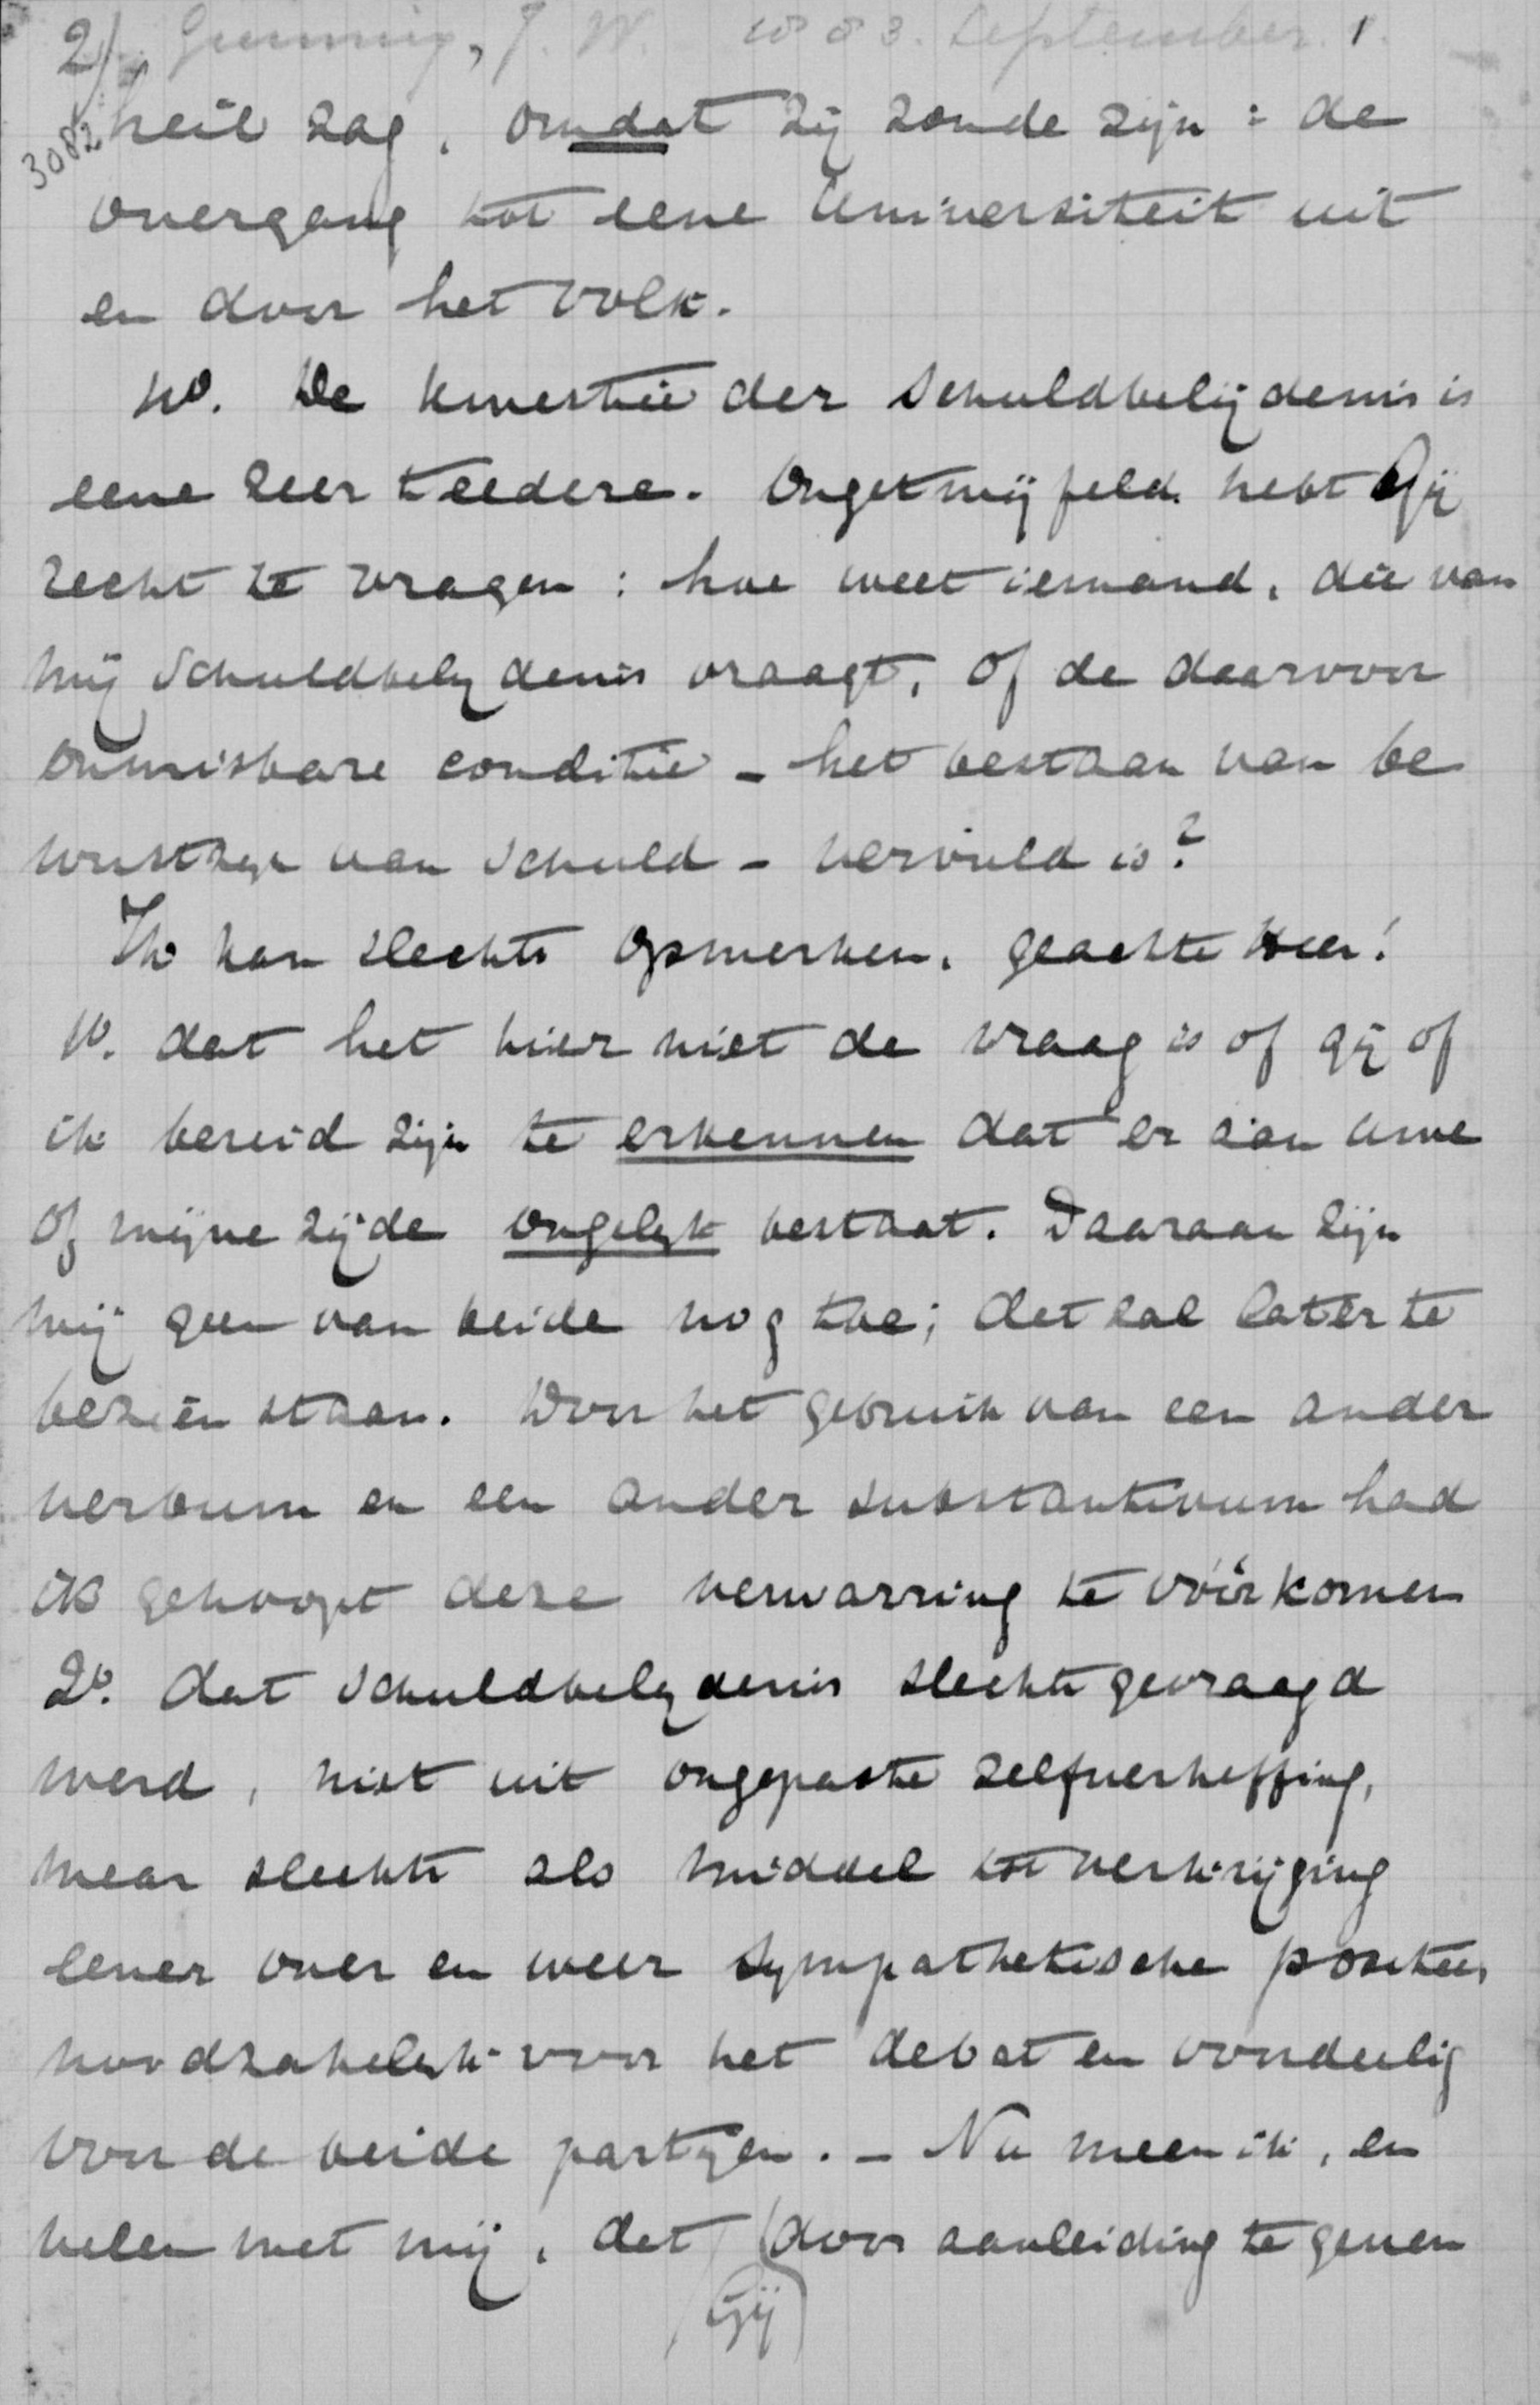 2/. Gunning, J. W. 1883. September. 1.
3082
heil zag, omdat zij zonde zijn: de
overgang tot eene Universiteit uit
en door het volk.
De kwestie der Schuldbelijdenis is
eene zeer teedere. Ongetwijfeld hebt Gij
recht te vragen: hoe weet iemand, die van
mij Schuldbelijdenis vraagt, of de daarvoor
onmisbare conditie - het bestaan van be
wustzijn van Schuld - vervuld is?
Ik kan slechts opmerken, geachte Heer!
1o. dat het hier niet de vraag is of gij of
ik bereid zijn te erkennen dat er aan uwe
of mijne zijde ongelijk bestaat. Daaraan zijn
wij geen van beide nog toe; dat zal later te
bezien staan. Door het gebruik van een ander
verbum en een ander substantivum had
ik gehoopt deze verwarring te vóórkomen
2o. dat Schuldbelijdenis slechts gevraagd
werd, niet uit ongepaste zelfverheffing,
maar slechts als middel tot verkrijging
eener over en weer sympathetische positie,
noodzakelijk voor het debat en voordeelig
voor de beide partijen. - Nu meen ik, en
velen met mij, dat door aanleiding te geven
(Gij)